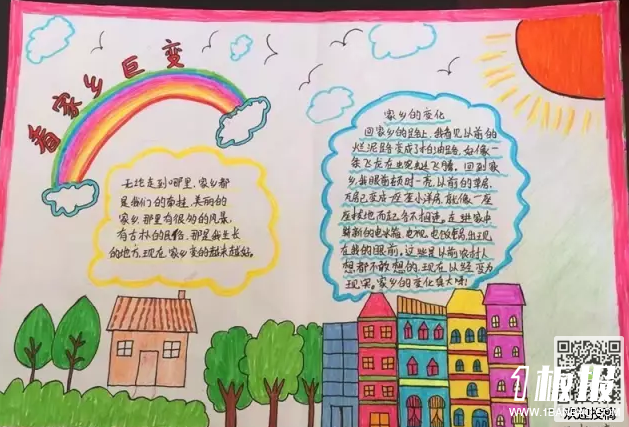 看家乡巨变
无论走到哪里,家乡都
是我们的牵挂,美丽的
家乡,那里有很多的风景,
有古朴的民俗,那是我生长
的地方,现在家乡变的越来越好。
家乡的变化
回家乡的路上,我看见以前的
烂泥路变成了柏油路,好像一
条飞龙在
回到家
乡,我眼前顿时一亮,以前的草房,
瓦房已变成一座座小洋房,就像一座
座拔地而起
家中
崭新的电冰箱,电视,电饭锅出现
在我的眼前,这些是以前农村人
想都不敢想的,现在以经变为
现实。家乡的变化真大呀!
1板报
WWW.1BANBAO.COM
欢迎投稿